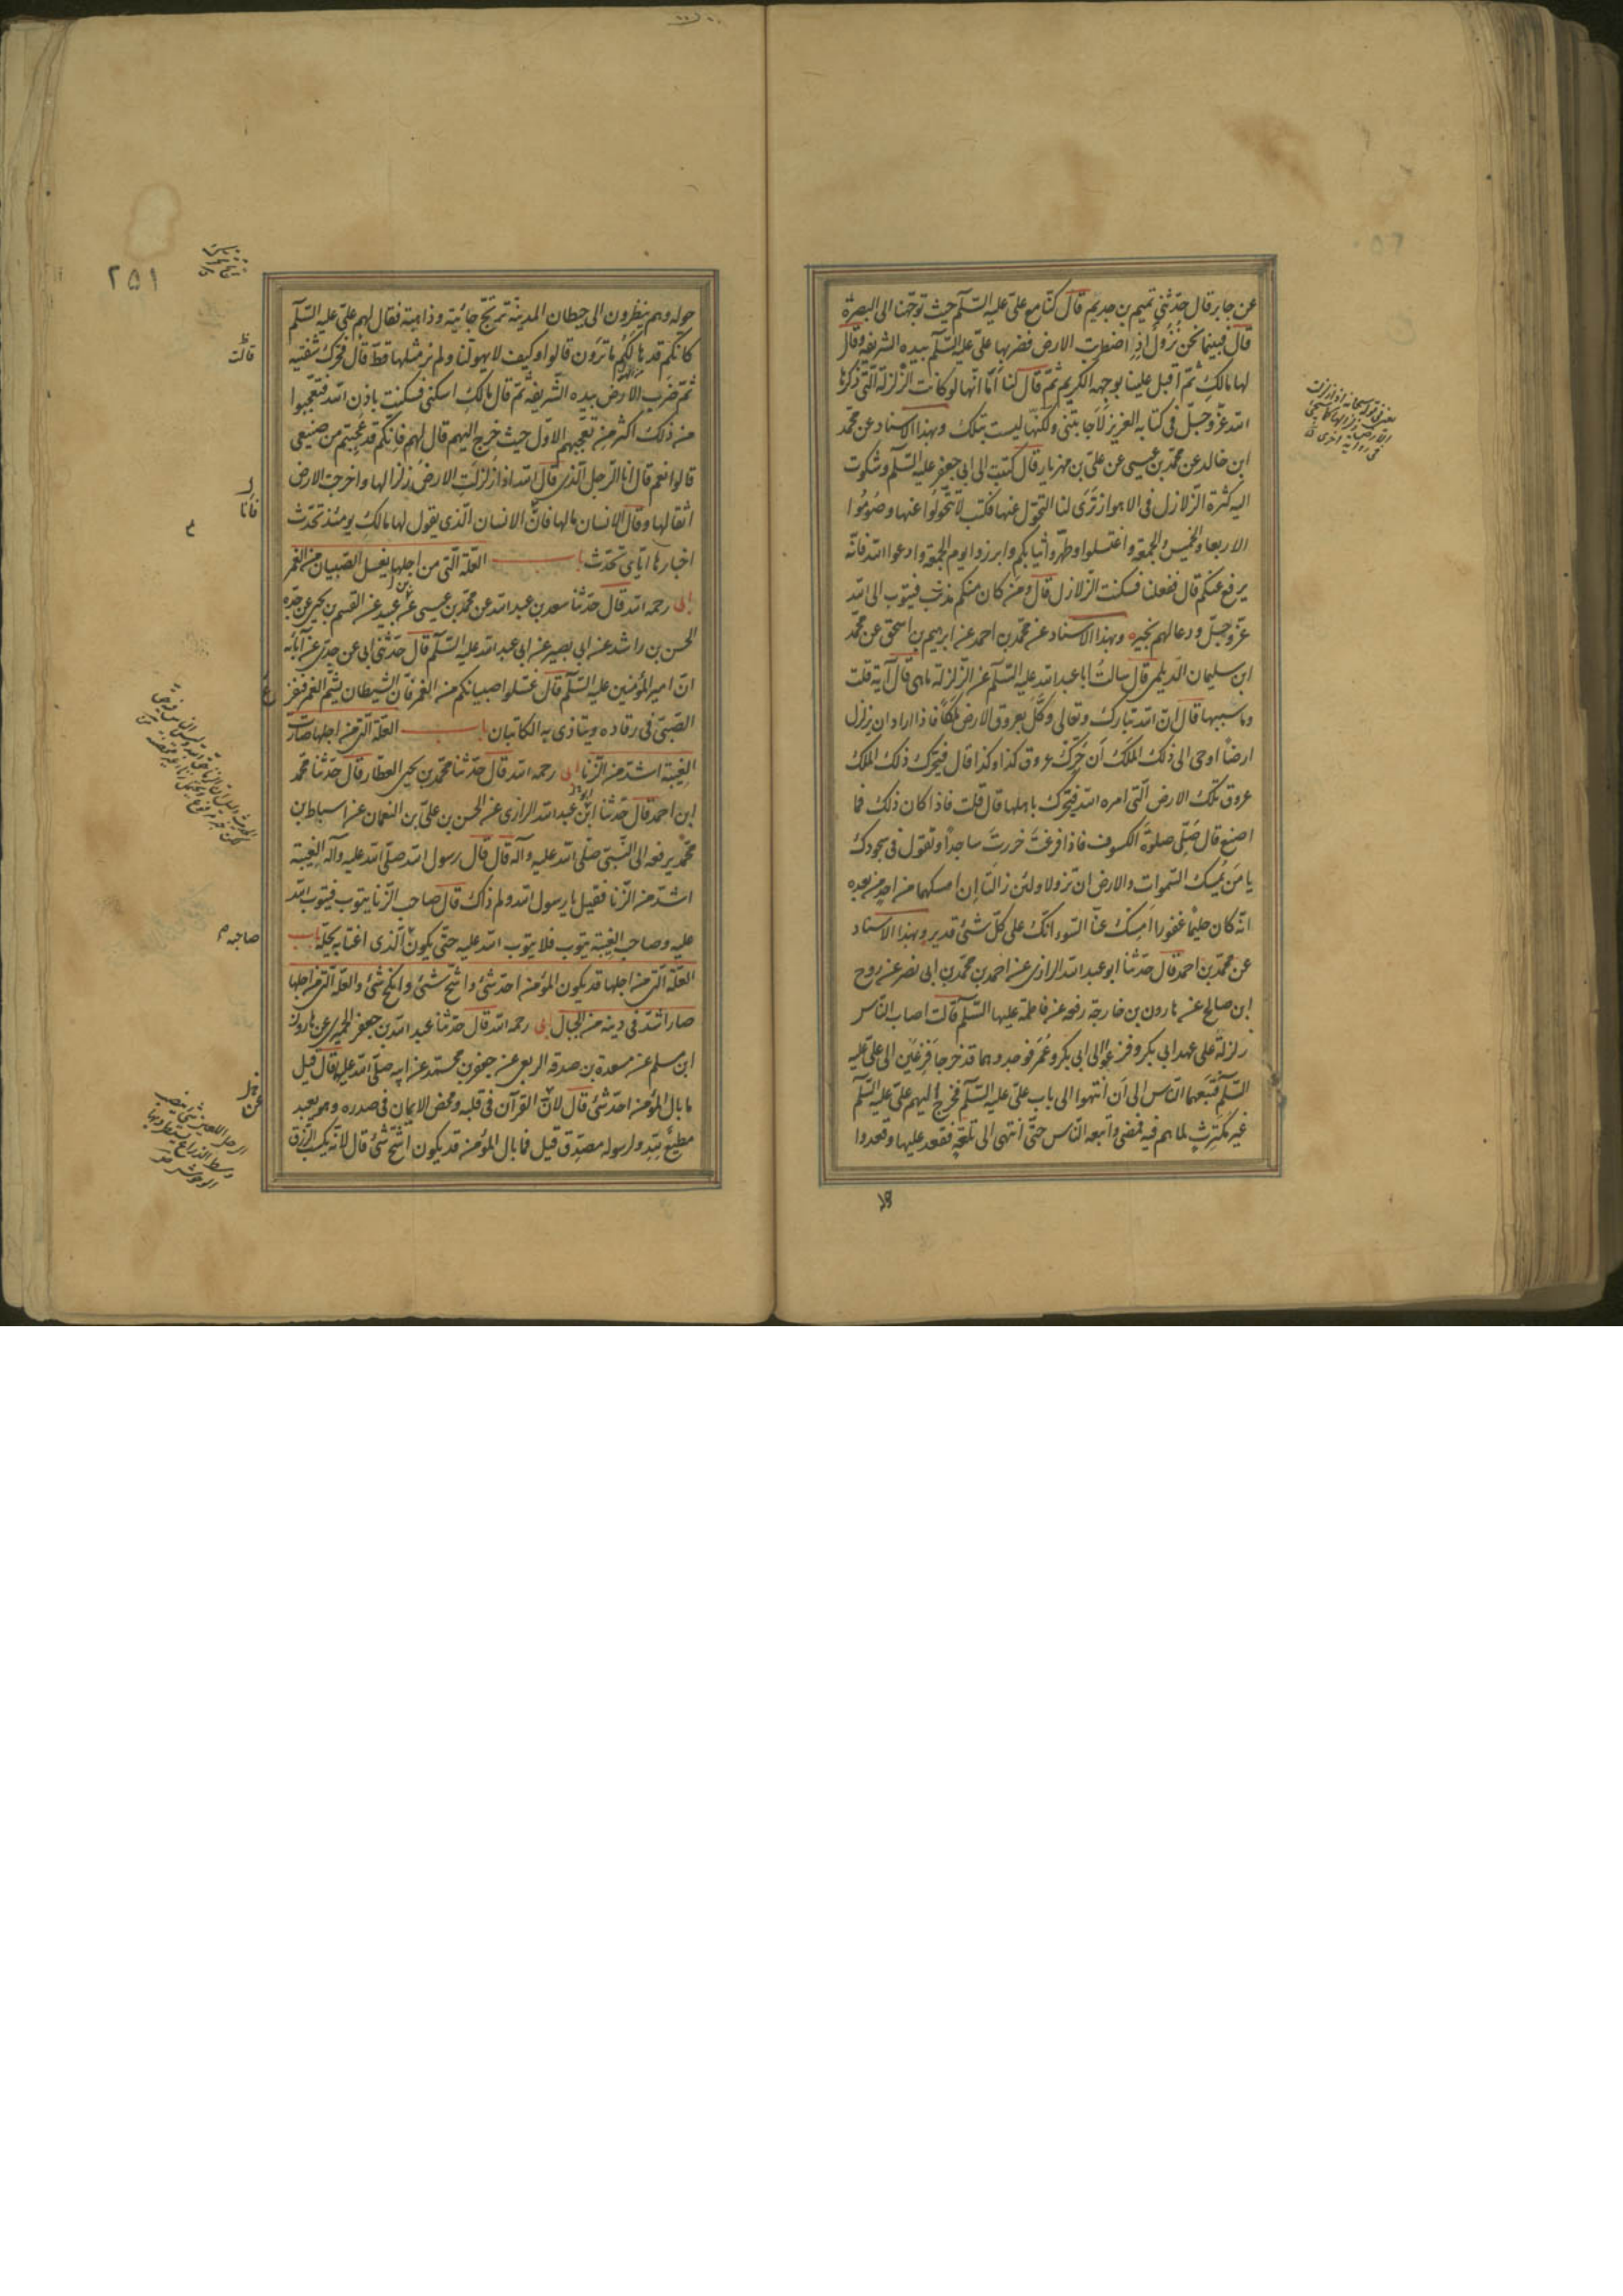 عن جابر قال حدّثنى تميم بن جديم قال كنّا مع علىّ عليه السّلم حيث توجّهنا الى البصرة
قال فبينما نحن نُزُولٌ اِذِ اضطربت الارض فضربها علىّ عليه السّلم بيده الشريفة وقال
لها مالكِ ثمّ اقبل علينا بوجهه الكريم ثمّ قال لنا اَمّا انّها لو كانت الزّلزلة الّتى ذكرها
اللّه عزّوجلّ فى كتابه العزيز لَاَجابتنى ولكنّها ليست بتلك وبهذا الاسناد عن محمّد
ابن خالد عن محمّد بن عيسى عن علىّ بن مهزيار قال كتبت الى ابى جعفر عليه السّلم وشكوت
اليه كثرة الزّلازل فى الاهواز تَرَى لنا التحوّل عنها فكتب لا تتحَوّلُوا عنها وصُومُوا
الاربعا والخميس والجمعة واغتسلوا وطهّروا ثيابكم وابرزوا يوم الجمعة وادعوا اللّه فانّه
يرفع عنكم قال ففعلنا فسكنت الزّلازل قال ومَن كان منكم مذنب فيتوب الى اللّه
عزّوجلّ ودعا لهم بخير وبهذا الاسناد عن محمّد بن احمد عن ابرهيم بن اسحق عن محمّد
ابن سليمان الدّيلمى قال سالتُ ابا عبد اللّه عليه السّلم عن الزّلزلة ماهى قال آية قلت
وما سببها قال انّ اللّه تبارك وتعالى وكَّلَ بعروق الارض مَلَكًا فاذا اراد ان يزلزل
ارضًا اوحى الى ذلك الملك اَن حَرِّك عروق كذا وكذا قال فيحرّك ذلك الملك
عروق تلك الارض الّتى امره اللّه فتحرّك باهلها قال قلت فاذا كان ذلك فما
اصنع قال صَلِّى صلوةَ الكسوف فاذا فرغتَ خررتَ ساجدًا وتقول فى سجودك
يا مَن يُمسِك السّموات والارض ان تزولا ولئن زالتا اِن امسكهما من احدٍ من بعده
انّه كان حليمًا غفورا اَمسِك عنّا السّوء انّك على كلّ شئ قدير وبهذا الاسناد
عن محمّد بن احمد قال حدّثنا ابو عبد اللّه الرازى عن احمد بن محمّد بن ابى نصر عن روح
ابن صالح عن هارون بن خارجة رفعه عن فاطمة عليها السّلم قالت اصاب النّاس
زلزلة على عهد ابى بكر وفزعوا الى ابى بكر وعُمَر فوجدوهما قد خرجا فَزِعَين الى علىّ عليه
السّلم فَتَبِعَهما النّاس الى اَن انتهوا الى باب علىّ عليه السّلم فخرج اليهم علىّ عليه السّلم
غير مُكتَرِثٍ لما هم فيه فمضى واتبعه النّاس حتّى انتهى الى تلعةٍ فقعد عليها وقعدوا
٢٥١
حوله وهم ينظرون الى حيطان المدينة ترتجّ جائية وذاهبة فقال لهم علىّ عليه السّلم
كانّكم قد هالَكُم ما تَرَون قالوا وكيف لا يهولنا ولم نر مثلها قطّ قال فحرّك شفتيه
قالت
ثمّ ضرب الارض بيده الشّريفة ثمّ قال مالكِ اسكنى فسكنت باذن اللّه فتعجّبوا
من ذلك اكثر من تعجّبهم الاوّل حيث خرج اليهم قال لهم فانّكم قد عجبتم من صنيعى
قالوا نعم قال انا الرّجل الّذى قال اللّه اذا زلزلت الارض زلزالها واخرجت الارض
فانا
اثقالها وقال الانسان مالها فانّ الانسان الّذى يقول لها مالكِ يومئذ تحدّث
اخبارها ايّاى تحدّث باب العلّة الّتى من اجلها يغسل الصّبيان من الغمر
ابى رحمه اللّه قال حدّثنا سعد بن عبد اللّه عن محمّد بن عيسى عن عبيد عن القسم بن يحيى عن جدّه
الحسن بن راشد عن ابى بصير عن ابى عبد اللّه عليه السّلم قال حدّثنى ابى عن جدّى عن آبائه
انّ امير المؤمنين عليه السّلم قال غسّلوا صبيانكم من الغمر فانّ الشّيطان يشمّ الغمر فيفزع
الصّبىّ فى رقاده ويتاذى به الكاتبان باب العلّة الّتى من اجلها صارت
الغيبة اشدّ من الزّنا ابى رحمه اللّه قال حدّثنا محمّد بن يحيى العطّار قال حدّثنا محمّد
ابن احمد قال حدّثنا ابو عبد اللّه الرازى عن الحسن بن علىّ بن النعمان عن اسباط بن
محمّد يرفعه الى النّبىّ صلّى اللّه عليه وآله قال قال رسول اللّه صلّى اللّه عليه وآله الغيبة
اشدّ من الزّنا فقيل يا رسول اللّه ولم ذاك قال صاحب الزّنا يتوب فيتوب اللّه
عليه وصاحب الغيبة يتوب فلا يتوب اللّه عليه حتّى يكون الّذى اغتابه يحلّه باب
صاحبه
العلّة الّتى من اجلها قد يكون المؤمن احدّ شئ واشحّ شئ وانكح شئ والعلّة الّتى من اجلها
صار اشدّ فى دينه من الجبال ابى رحمه اللّه قال حدّثنا عبد اللّه بن جعفر الحميرى عن هارون
ابن مسلم عن مسعدة بن صدقة الربعى عن جعفر بن محمّد عن ابيه صلّى اللّه عليه قال قيل
ما بال المؤمن احدّ شئ قال لانّ القرآن فى قلبه ومحض الايمان فى صدره وهو بعد
مطيع للّه ولرسوله مصدّق قيل فما بال المؤمن قد يكون اشحّ شئ قال لانّه يكسب الرّزق